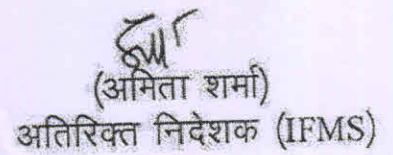 (अमिता शर्मा)
अतिरिक्त निदेशक (IFMS)